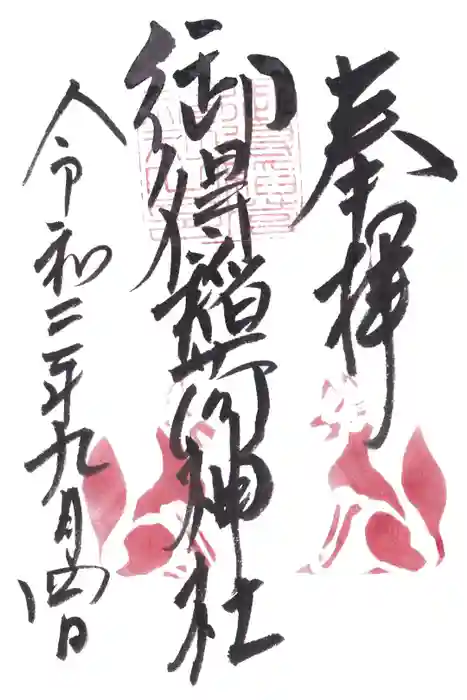 奉拝
御得稲荷神社
令和三年九月四日